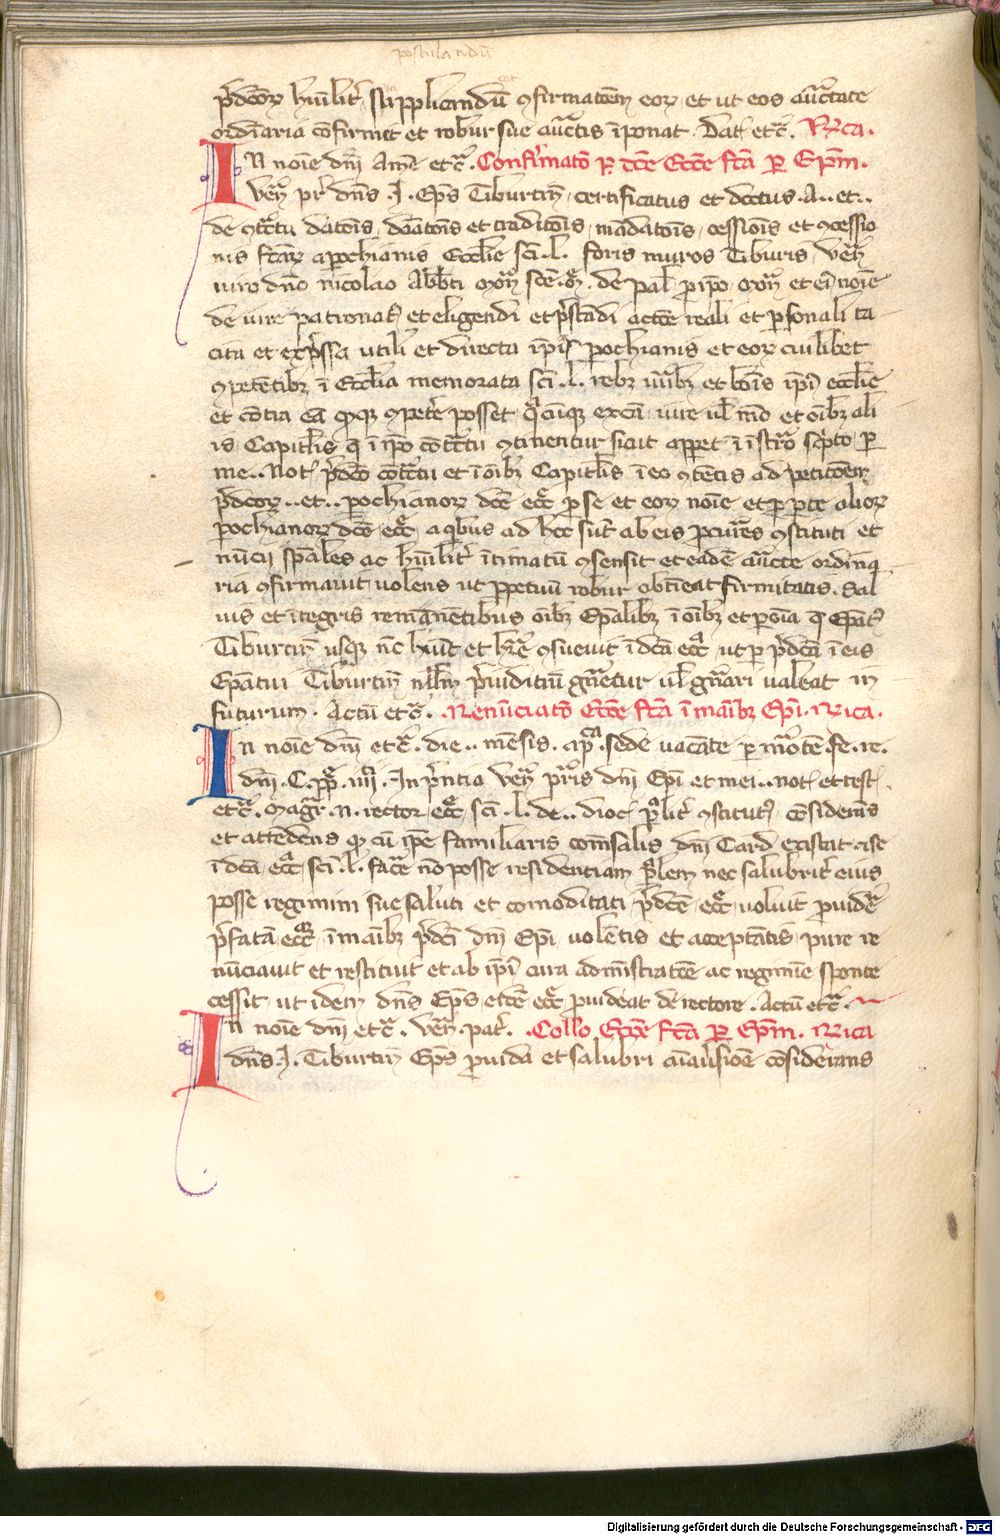 postulandū
p̄dc̄oꝝ hūilit̄ supplicandū ꝯfirmatōem eoꝝ et ut eos auct̄tate
ordīaria cōfirmet et robur sue auct̄is īponat. Dat̄ etc̄. R̄ica.
IN noīe dn̄i Am̄e etc̄. Confirmatō p̄ dc̄e Ecc̄e fc̄a ꝑ Ep̄m.
Ven̄ pr̄ dn̄s .J. Ep̄s Tiburtin̄ certificatus et doctus .A.. et..
de ꝯt̄ctu datōis, dōatōis et traditōis, mādatōis, cessiōis et ꝯcessio
nis fc̄aꝝ a ꝑochianis Eccl̄ie sc̄i .l. foris muros Tiburis, ven̄
uiro dn̄o nicolao Abb̄ti mon̄ sc̄e .m̄. de pal̄ ꝓ ip̄o mon̄ et ei noīe
de iure patronat̄ et eligendi et p̄stādi actōe reali et ꝑsonali ta
cita et exp̄ssa utili et directa ip̄is ꝑochianis et eoꝝ cuilibet
ꝯpetētibꝫ ī Eccl̄ia memorata sc̄i .l. rebꝫ iurībꝫ et bōis ip̄i eccl̄ie
et cōtra eā ꝯpet̄e posset q̄cūqꝫ excā iure ul̄ mō et oībꝫ ali
is Capitl̄is q̄ ī ip̄o cōt̄ctu ꝯtinentur sicut apꝑet ī īstr̄o sc̄pto ꝑ
me .. Not̄ p̄dc̄o cōt̄ctu et ī oībꝫ Capitl̄is ī eo ꝯtētis ad petitōem
p̄dc̄oꝝ .. et .. ꝑochianoꝝ dc̄e ecc̄e ꝓ se et eoꝝ noīe et ꝓ ꝑte alioꝝ
ꝑochianoꝝ dc̄e ecc̄e a qibus ad hec sūt ab eis ꝓcur̄es ꝯstituti et
nūcij sp̄ales ac hūilit̄ ītimatū ꝯsensit et eadē auct̄e ordina
ria ꝯfirmauit uolens ut ꝑpetuū robur obtīeat firmitatis. Sal
uis et ītegris remanētibus oībꝫ ep̄alibꝫ ī oībꝫ et ꝑ oīa q̄ Ep̄at̄
Tiburtin̄ usqꝫ nc̄ hūit et h̄re ꝯsueuit ī dc̄a ecc̄a ut ꝑ p̄dc̄a ī eis
Ep̄atui Tiburtin̄ nll̄m p̄iuditiū gn̄etur ul̄ gn̄ari ualeat in
futurum. Actū etc̄. Renūciatō Ecc̄e fc̄a ī manībꝫ Ep̄i. R̄ica.
In noīe dn̄i etc̄. die .. mēsis. ap̄. sede uacāte ꝑ mortē fe. re.
dn̄i .C. pp̄. iiij. In p̄ntia ven̄ pr̄is dn̄i Ep̄i et mei .. not̄ et test̄
etc̄. Magr̄ .N. rector ecc̄e sc̄i .l. de .. dioc̄ p̄lit̄ ꝯstitut̄ cōsiderās
et attēdens qꝫ cū ip̄e familiaris comēsalis dn̄i Card̄ existat, ise
ī dc̄a ecc̄a sc̄i .l. fac̄e nō posse residentiam p̄lem nec salubrit̄ eius
posse regimini sue saluti et comoditati p̄dc̄e ecc̄e uoluit ꝓuid̄e
p̄fatā ecc̄am ī manībꝫ p̄dc̄i dn̄i Ep̄i uolētis et acceptātis pure re
nūciauit et restituit et ab ip̄i cura administratōe ac regimīe sponte
cessit, ut idem dn̄s Ep̄s etdē ecc̄e ꝓuideat de rectore. Actū etc̄.
In noīe dn̄i etc̄. ven̄ pat̄. Collō Ecc̄e fc̄a ꝑ Ep̄m. R̄ica
dn̄s .J. Tiburtin̄ Ep̄s ꝓuida et salubri aīaduersiōe cōsiderans
Digitalisierung gefördert durch die Deutsche Forschungsgemeinschaft - DFG